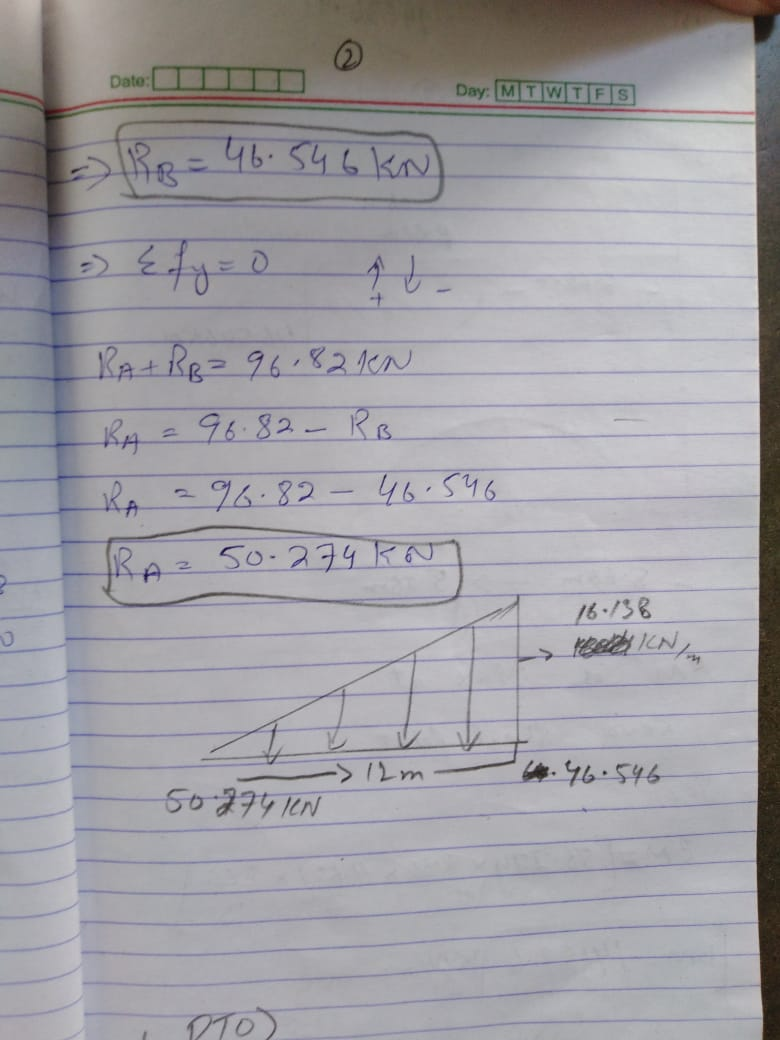 ②
Date:
Day: M T W T F S
=> RB = 46.546 KN
=> Σfy = 0 ↑+ ↓-
RA + RB = 96.82 KN
RA = 96.82 - RB
RA = 96.82 - 46.546
RA = 50.274 KN
16.138
KN/m
-> 12m
46.546
50.274 KN
PTO)